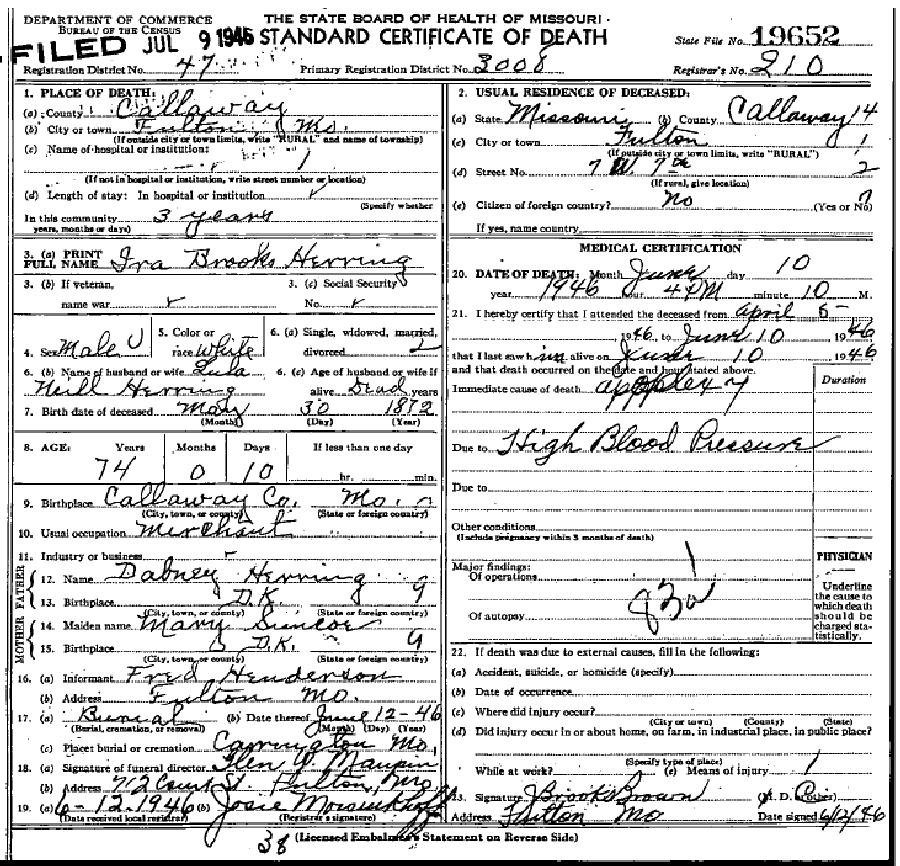 DEPARTMENT OF COMMERCE
BUREAU OF THE CENSUS
THE STATE BOARD OF HEALTH OF MISSOURI
STANDARD CERTIFICATE OF DEATH
FILED JUL 9 1946
State File No. 19652
Registration District No. 47
Primary Registration District No. 3008
Registrar's No. 210
1. PLACE OF DEATH:
(a) County Callaway
(b) City or town Fulton, Mo.
(If outside city or town limits, write "RURAL" and name of township)
(c) Name of hospital or institution:
(If not in hospital or institution, write street number or location)
(d) Length of stay: In hospital or institution
(Specify whether
In this community 3 years
years, months or days)
2. USUAL RESIDENCE OF DECEASED:
(a) State Missouri (b) County Callaway 14
(c) City or town Fulton 1
(If outside city or town limits, write "RURAL")
(d) Street No. 7 W 7th 2
(If rural, give location)
(e) Citizen of foreign country? No (Yes or No)
If yes, name country
3. (a) PRINT FULL NAME Ira Brooks Herring
3. (b) If veteran, name war
3. (c) Social Security No.
4. Sex Male
5. Color or race White
6. (a) Single, widowed, married, divorced 2
6. (b) Name of husband or wife Lula Neill Herring
6. (c) Age of husband or wife if alive Dead years
7. Birth date of deceased May 30 1872
(Month) (Day) (Year)
8. AGE: Years Months Days If less than one day
74 0 10 hr. min.
9. Birthplace Callaway Co. Mo.
(City, town, or county) (State or foreign country)
10. Usual occupation Merchant
11. Industry or business
FATHER
12. Name Dabney Herring
13. Birthplace D.K. 9
(City, town, or county) (State or foreign country)
MOTHER
14. Maiden name Mary
15. Birthplace D.K. 9
(City, town, or county) (State or foreign country)
16. (a) Informant Fred Henderson
(b) Address Fulton Mo.
17. (a) Burial (b) Date thereof June 12-46
(Burial, cremation, or removal) (Month) (Day) (Year)
(c) Place: burial or cremation Carrington Mo.
18. (a) Signature of funeral director Glen Y. Maupin
(b) Address Court St. Fulton, Mo.
19. (a) 6-12-1946 (b) Josie
(Date received local registrar) (Registrar's signature)
MEDICAL CERTIFICATION
20. DATE OF DEATH: Month June day 10
year 1946 hour 4 PM minute 10 M.
21. I hereby certify that I attended the deceased from April 5-
1946, to June 10 1946
that I last saw him alive on June 10 1946
and that death occurred on the date and hour stated above.
Duration
Immediate cause of death apoplexy
Due to High Blood Pressure
Due to
Other conditions
(Include pregnancy within 3 months of death)
Major findings:
Of operations
Of autopsy
83a
PHYSICIAN
Underline the cause to which death should be charged statistically.
22. If death was due to external causes, fill in the following:
(a) Accident, suicide, or homicide (specify)
(b) Date of occurrence
(c) Where did injury occur?
(City or town) (County) (State)
(d) Did injury occur in or about home, on farm, in industrial place, in public place?
(Specify type of place)
While at work? (e) Means of injury
23. Signature Brooks Brown (M. D. or other)
Address Fulton Mo Date signed 6/12/46
38
(Licensed Embalmer's Statement on Reverse Side)